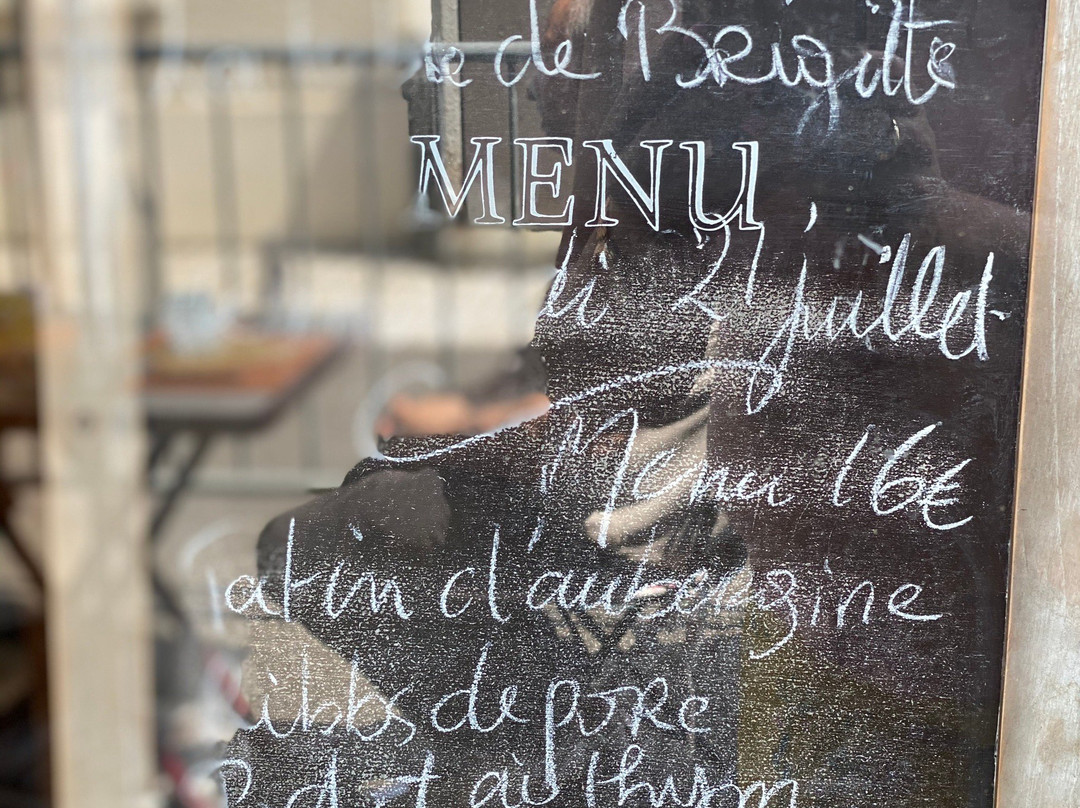 de Brigitte
MENU
di 21 juillet
Menu 16€
atin d'aubergine
ibbs de porc
au thym